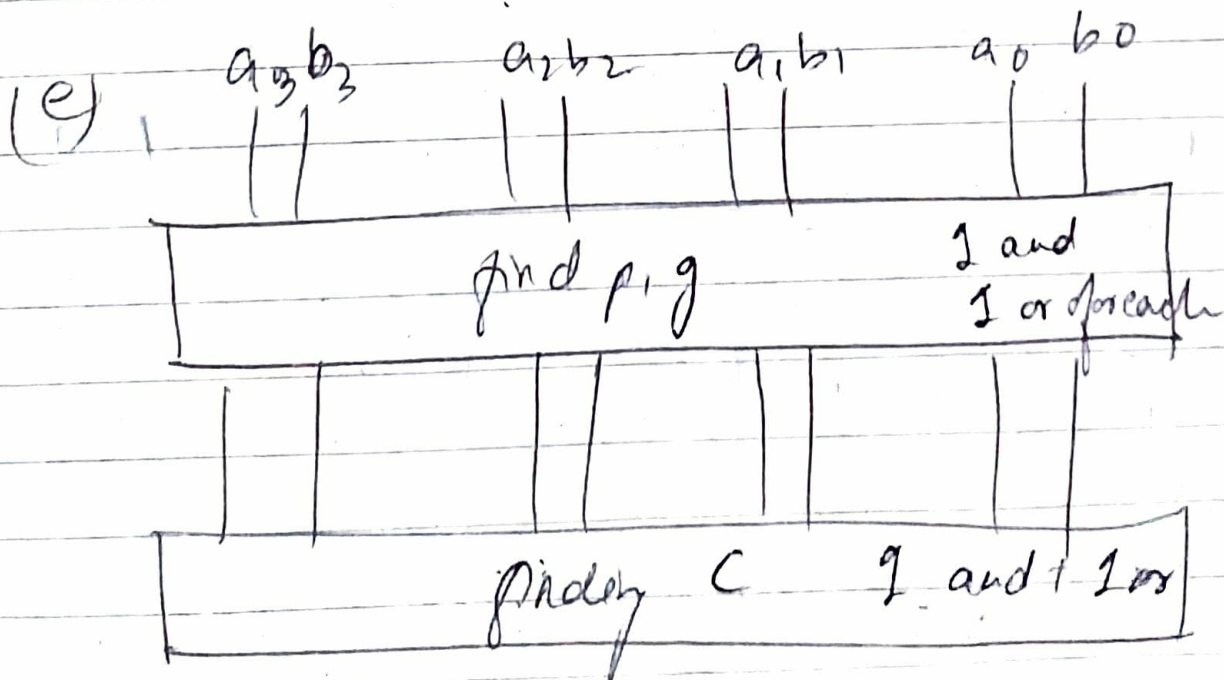 (e) a3 b3 a2 b2 a1 b1 a0 b0
find p, g
1 and
1 or foreach
finding C 1 and + 1 or